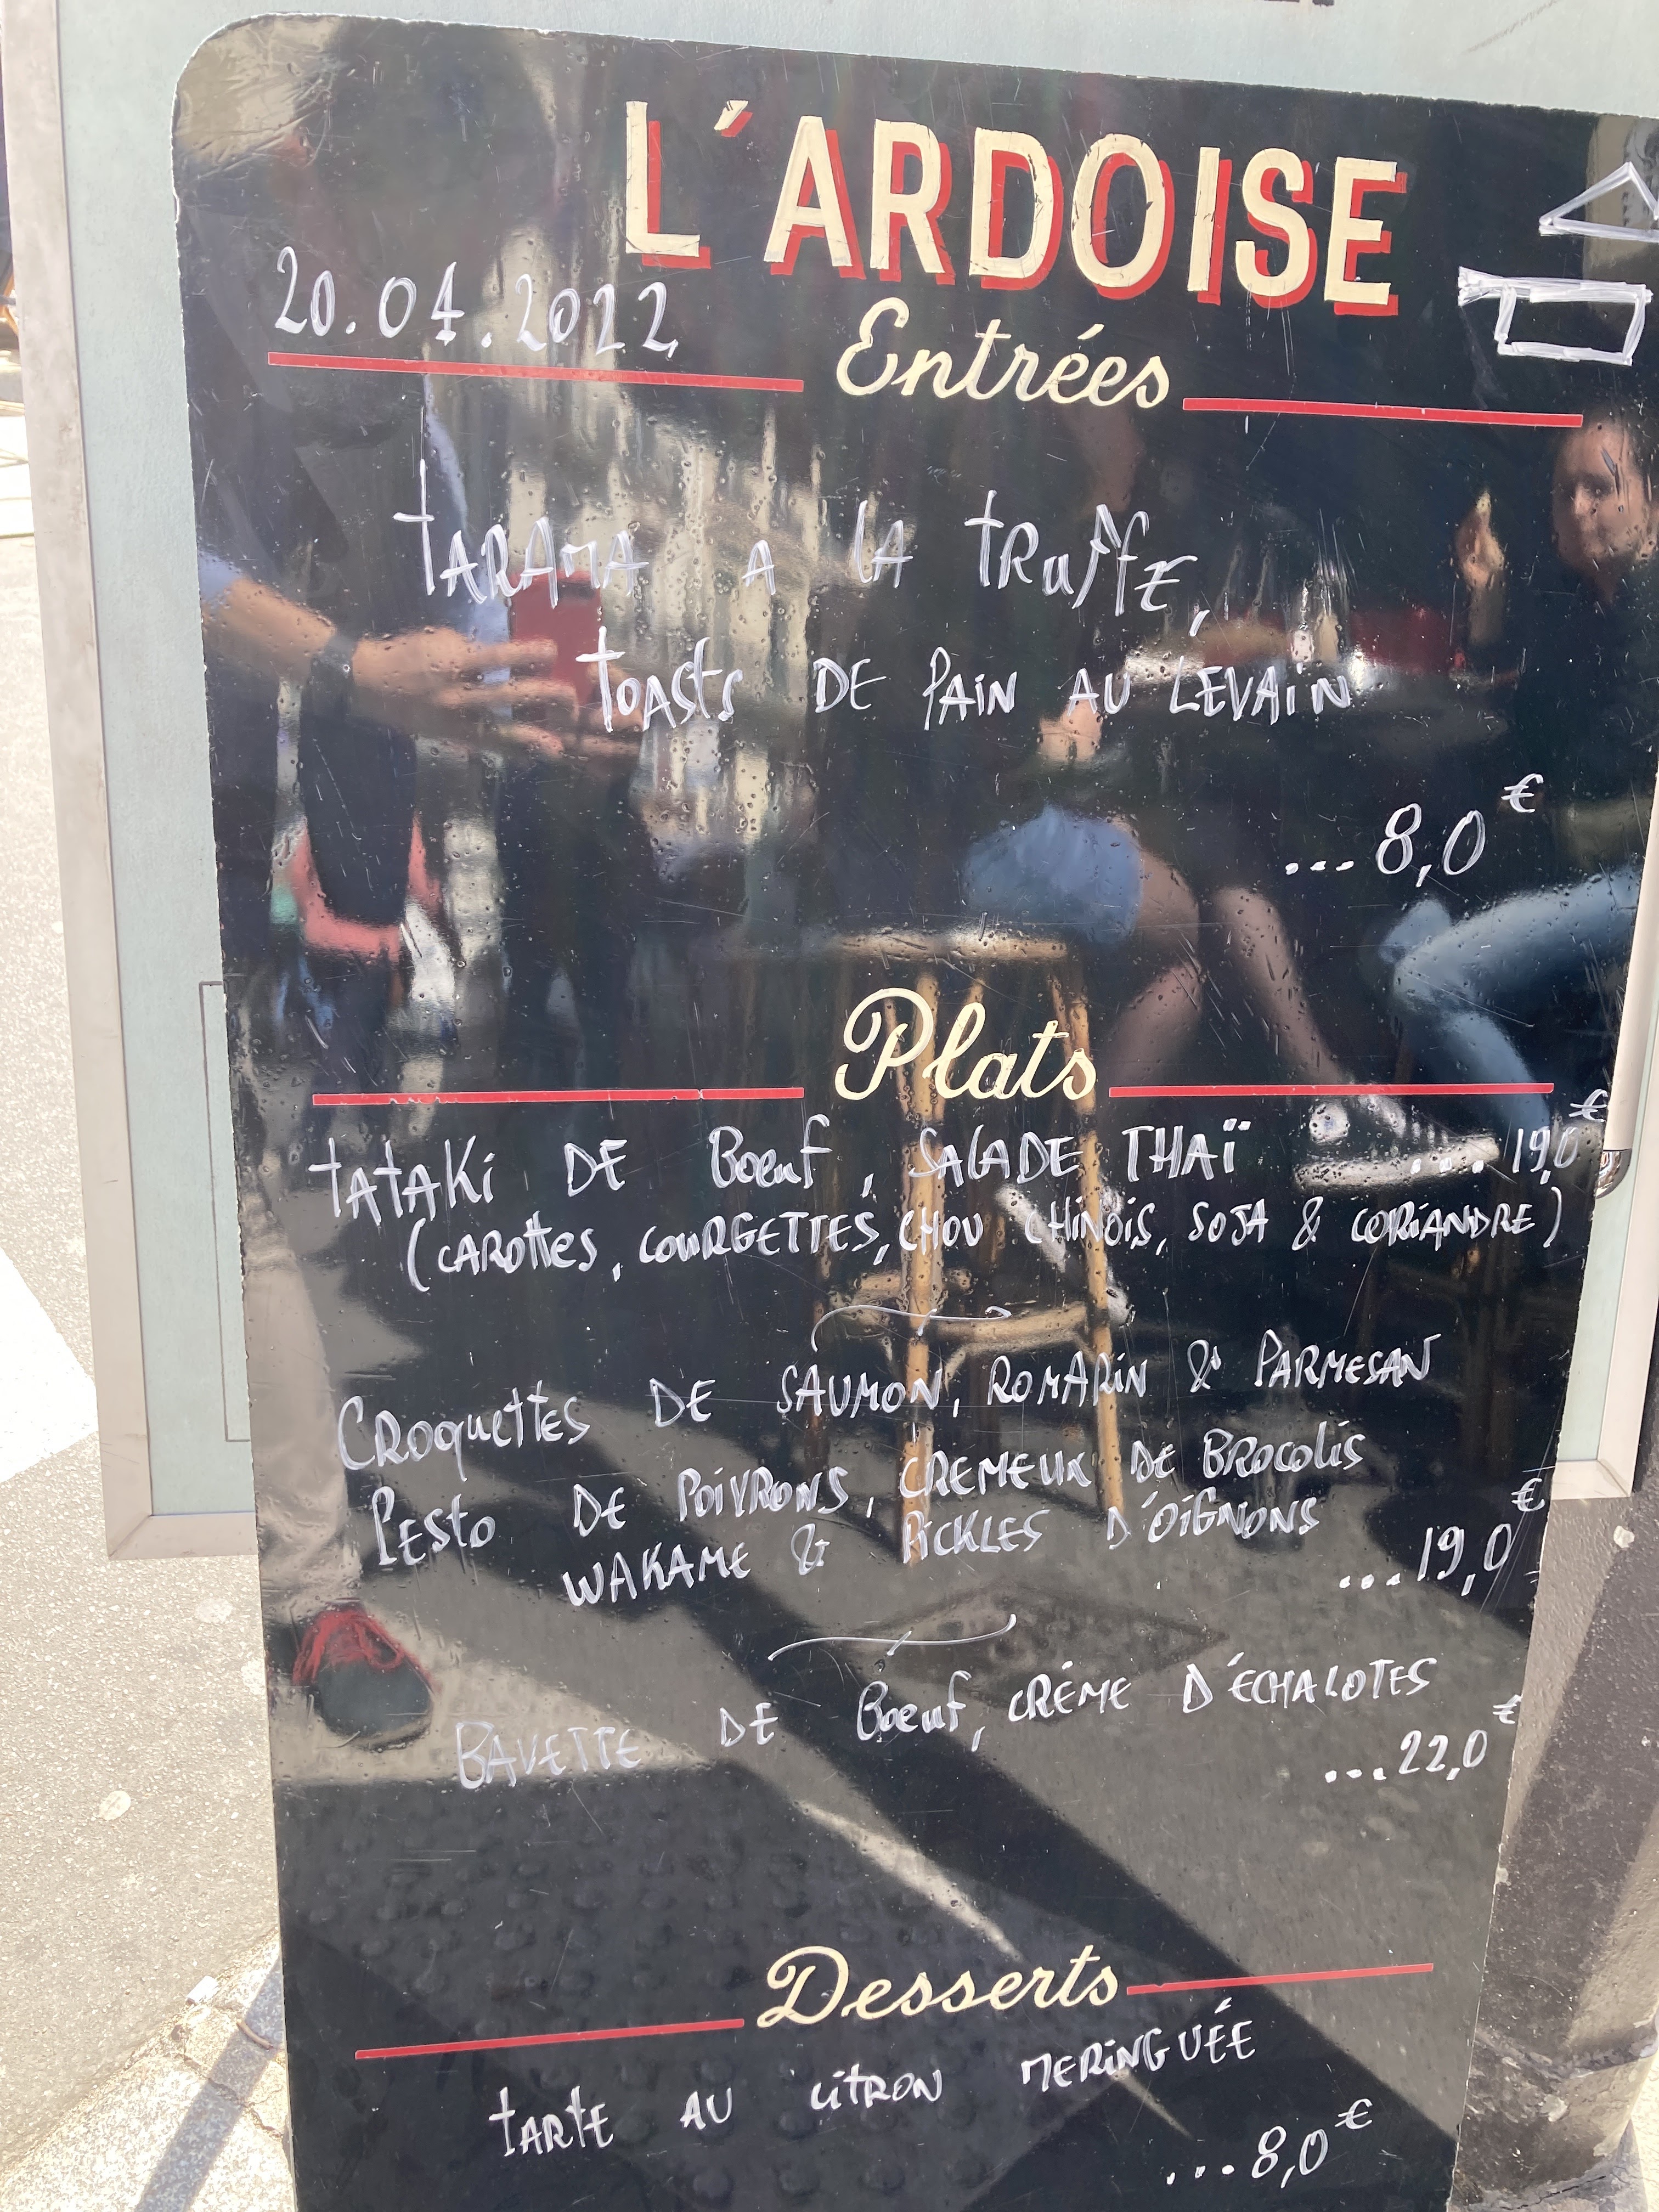 L'ARDOISE
20.04.2022
Entrées
TARAMA A LA TRUFFE,
TOASTS DE PAIN AU LEVAIN
...8,0€
Plats
TATAKI DE BŒUF, SALADE THAÏ ...19,0€
(CAROTTES, COURGETTES, CHOU CHINOIS, SOJA & CORIANDRE)
CROQUETTES DE SAUMON, ROMARIN & PARMESAN
PESTO DE POIVRONS, CREMEUX DE BROCOLIS
WAKAME & PICKLES D'OIGNONS
...19,0€
BAVETTE DE BŒUF, CRÈME D'ÉCHALOTES
...22,0€
Desserts
TARTE AU CITRON MERINGUÉE
...8,0€